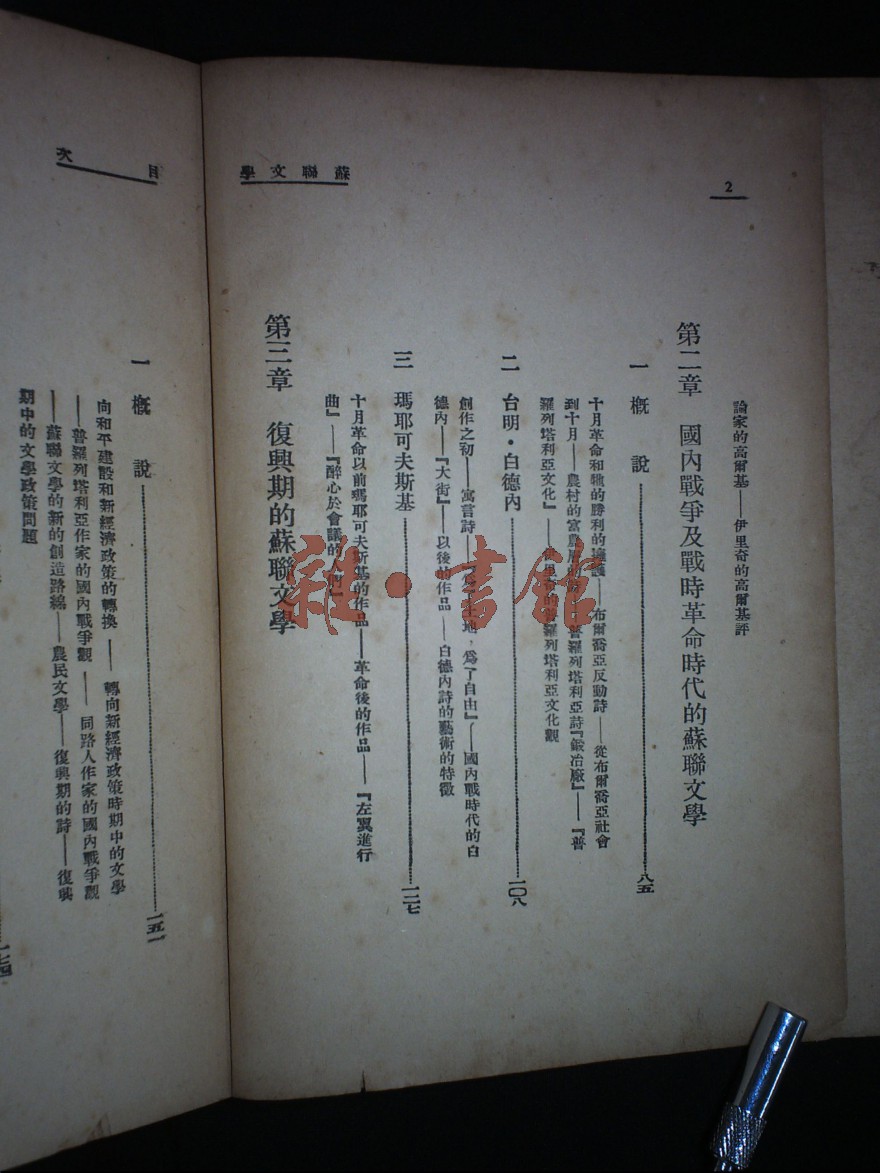 2
蘇聯文學
論家的高爾基——伊里奇的高爾基評
第二章 國內戰爭及戰時革命時代的蘇聯文學
一 概說……八五
十月革命和牠的勝利的擁護——布爾喬亞反動詩——從布爾喬亞社會
到十月——農村的富農 普羅列塔利亞詩『鍛冶廠』——『普
羅列塔利亞文化』——伊里奇的普羅列塔利亞文化觀
二 台明・白德內……一〇八
創作之初——寓言詩—— 地，爲了自由』——國內戰時代的白
德內——『大街』——以後的作品——白德內詩的藝術的特徵
三 瑪耶可夫斯基……一二七
十月革命以前瑪耶可夫斯基的作品——革命後的作品——『左翼進行
曲』——『醉心於會議的人們』
第三章 復興期的蘇聯文學
目次
一 概說……一五一
向和平建設和新經濟政策的轉換——轉向新經濟政策時期中的文學
——普羅列塔利亞作家的國內戰爭觀——同路人作家的國內戰爭觀
——蘇聯文學的新的創造路線——農民文學——復興期的詩——復興
期中的文學政策問題
一七四
雜・書館